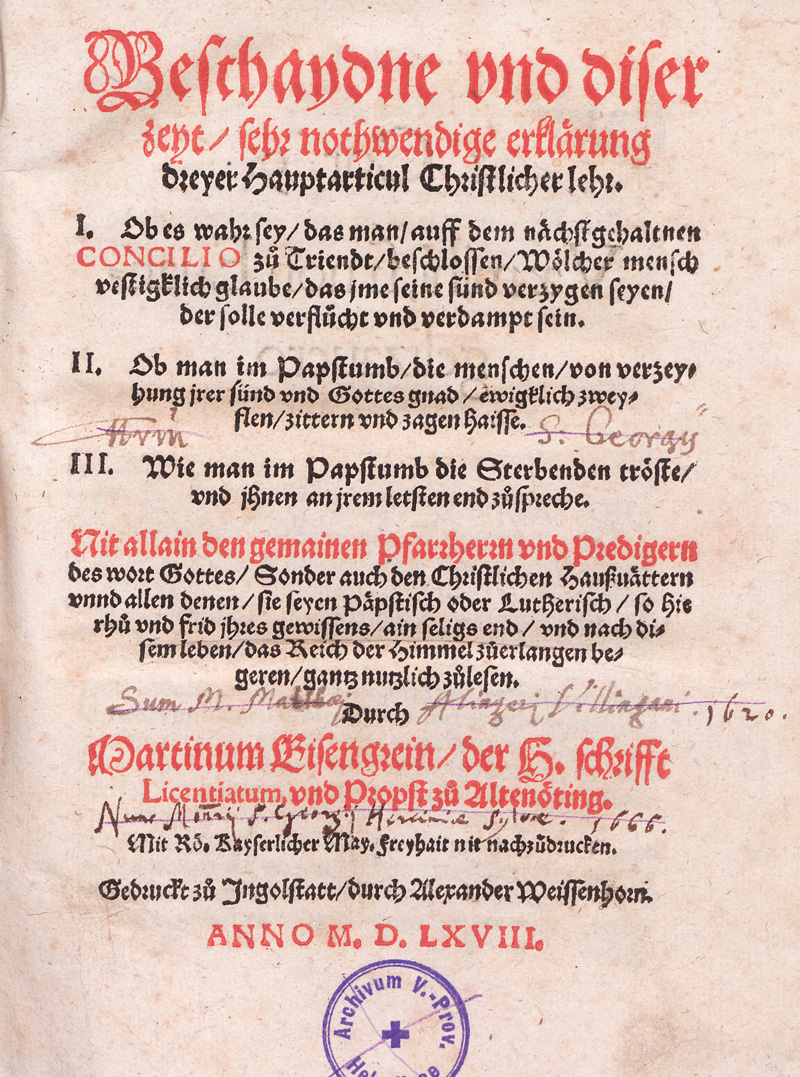 Beschaydne vnd diser
zeyt/ sehr nothwendige erklärung
dreyer Hauptarticul Christlicher lehr.
I. Ob es wahr sey/das man/auff dem nächstgehaltnen
CONCILIO zů Triendt/beschlossen/Wölcher mensch
vestigklich glaube/das jme seine sünd verzygen seyen/
der solle verflůcht vnd verdampt sein.
II. Ob man im Papstumb/die menschen/von verzey-
hung jrer sünd vnd Gottes gnad /ewigklich zwey-
flen/zittern vnd zagen haisse.
S. Georgij
III. Wie man im Papstumb die Sterbenden tröste/
vnd jhnen an jrem letsten end zůspreche.
Nit allain den gemainen Pfarrherrn vnd Predigern
des wort Gottes/ Sonder auch den Christlichen Haußuättern
vnnd allen denen/ sie seyen Päpstisch oder Lutherisch / so hie
rhů vnd frid jhres gewissens/ain seligs end / vnd nach di-
sem leben/das Reich der Himmel zůerlangen be-
geren/gantz nutzlich zůlesen.
Sum M. 1620.
Durch
Martinum Eisengrein/ der H. schrifft
Licentiatum, vnd Propst zů Altenöting.
Nunc S. Georgij 1666.
Mit Rö. Kayserlicher May. Freyhait nit nachzůdrucken.
Gedruckt zů Ingolstatt/durch Alexander Weissenhorn.
ANNO M. D. LXVIII.
Archivum V.-Prov.